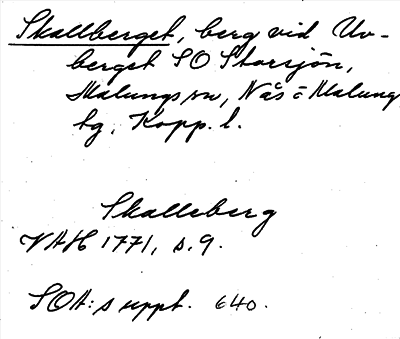 Skallberget, berg vid Uv-
berget SO Storsjön,
Malungs sn, Nås o Malung
tg, Kopp. l.
Skalleberg
VAH 1771, s. 9.
SOA: s suppt. 640.